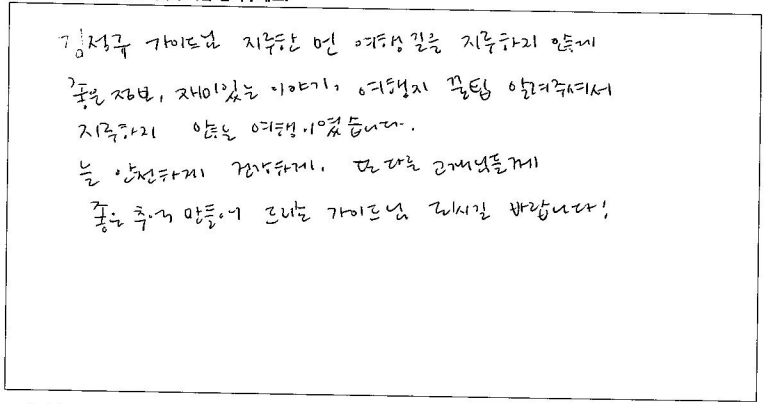 김적규 가이드님 지루한 먼 여행길을 지루하지 않게
좋은 정보, 재미있는 이야기, 여행지 꿀팁 알려주셔서
지루하지 않는 여행이였습니다.
늘 안전하게 건강하게, 또다른 고객님들께
좋은 추억 만들어 드리는 가이드님 되시길 바랍니다!